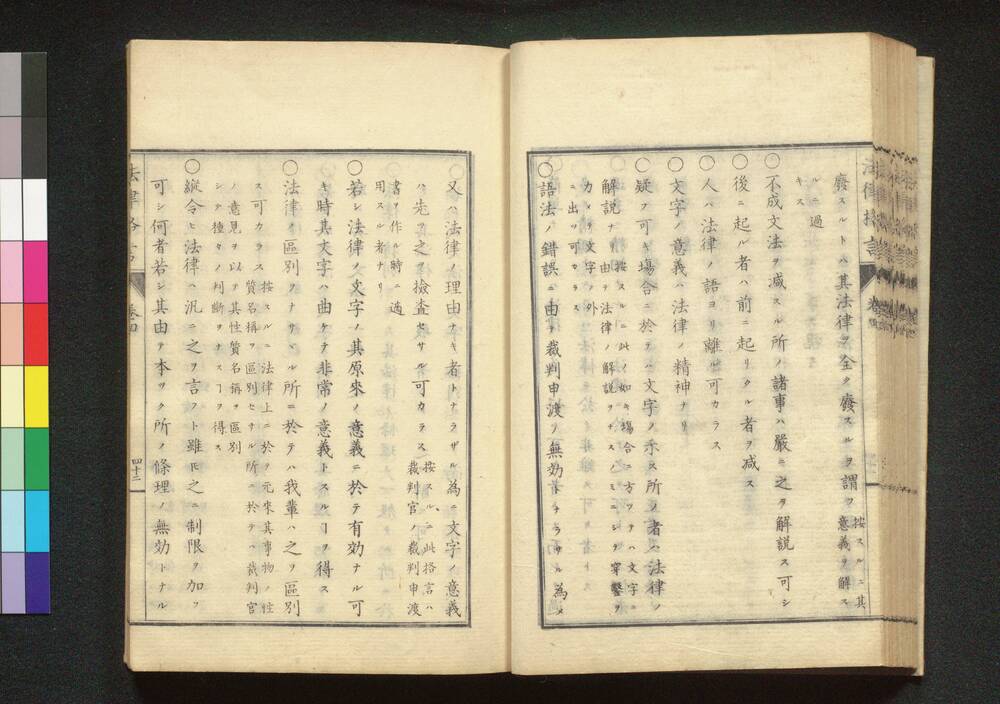 廢スルトハ其法律ヲ全ク廢スルヲ謂フ按スルニ其意義ヲ解ス
ルニ過
キス
〇不成文法ヲ減スル所ノ諸事ハ嚴ニ之ヲ解説ス可シ
〇後ニ起ル者ハ前ニ起リタル者ヲ減ス
〇人ハ法律ノ語ヨリ離ル可カラス
〇文字ノ意義ハ法律ノ精神ナリ
〇疑フ可キ塲合ニ於テハ文字ノ示ス所ノ者ハ法律ノ
解説ナリ按スルニ此ノ如キ塲合ニ方ツテハ文字ニ
由テ法律ノ解説ヲナスノミニシテ穿鑿ヲ
カメテ文字ノ外
ニ出ツ可カラス
〇語法ノ錯誤ニ由テ裁判申渡ヲ無効ナラシムル為メ
又ハ法律ノ理由ナキ者トナラザル為ニ文字ノ意義
ハ先ツ之ヲ檢査セサル可カラス按スルニ此格言ハ
裁判官ノ裁判申渡
書ヲ作ル時ニ適
用スル者ナリ
〇若シ法律ノ文字ノ其原來ノ意義ニ於テ有効ナル可
キ時其文字ハ曲ケテ非常ノ意義トスルヿヲ得ス
〇法律ノ區別ヲナサヾル所ニ於テハ我輩ハ之ヲ區別
ス可カラス按スルニ法律上ニ於テ元來其事物ノ性
質名稱ヲ區別セサル所ニ於テハ裁判官
ノ意見ヲ以テ其性質名稱ヲ區別
シテ種々ノ判斷ヲナスヿヲ得ス
〇縱令ヒ法律ハ汎ニ之ヲ言フト雖𪜈之ニ制限ヲ加フ
可シ何者若シ其由テ本ツク所ノ條理ノ無効トナル
法律格言
卷四
四十三